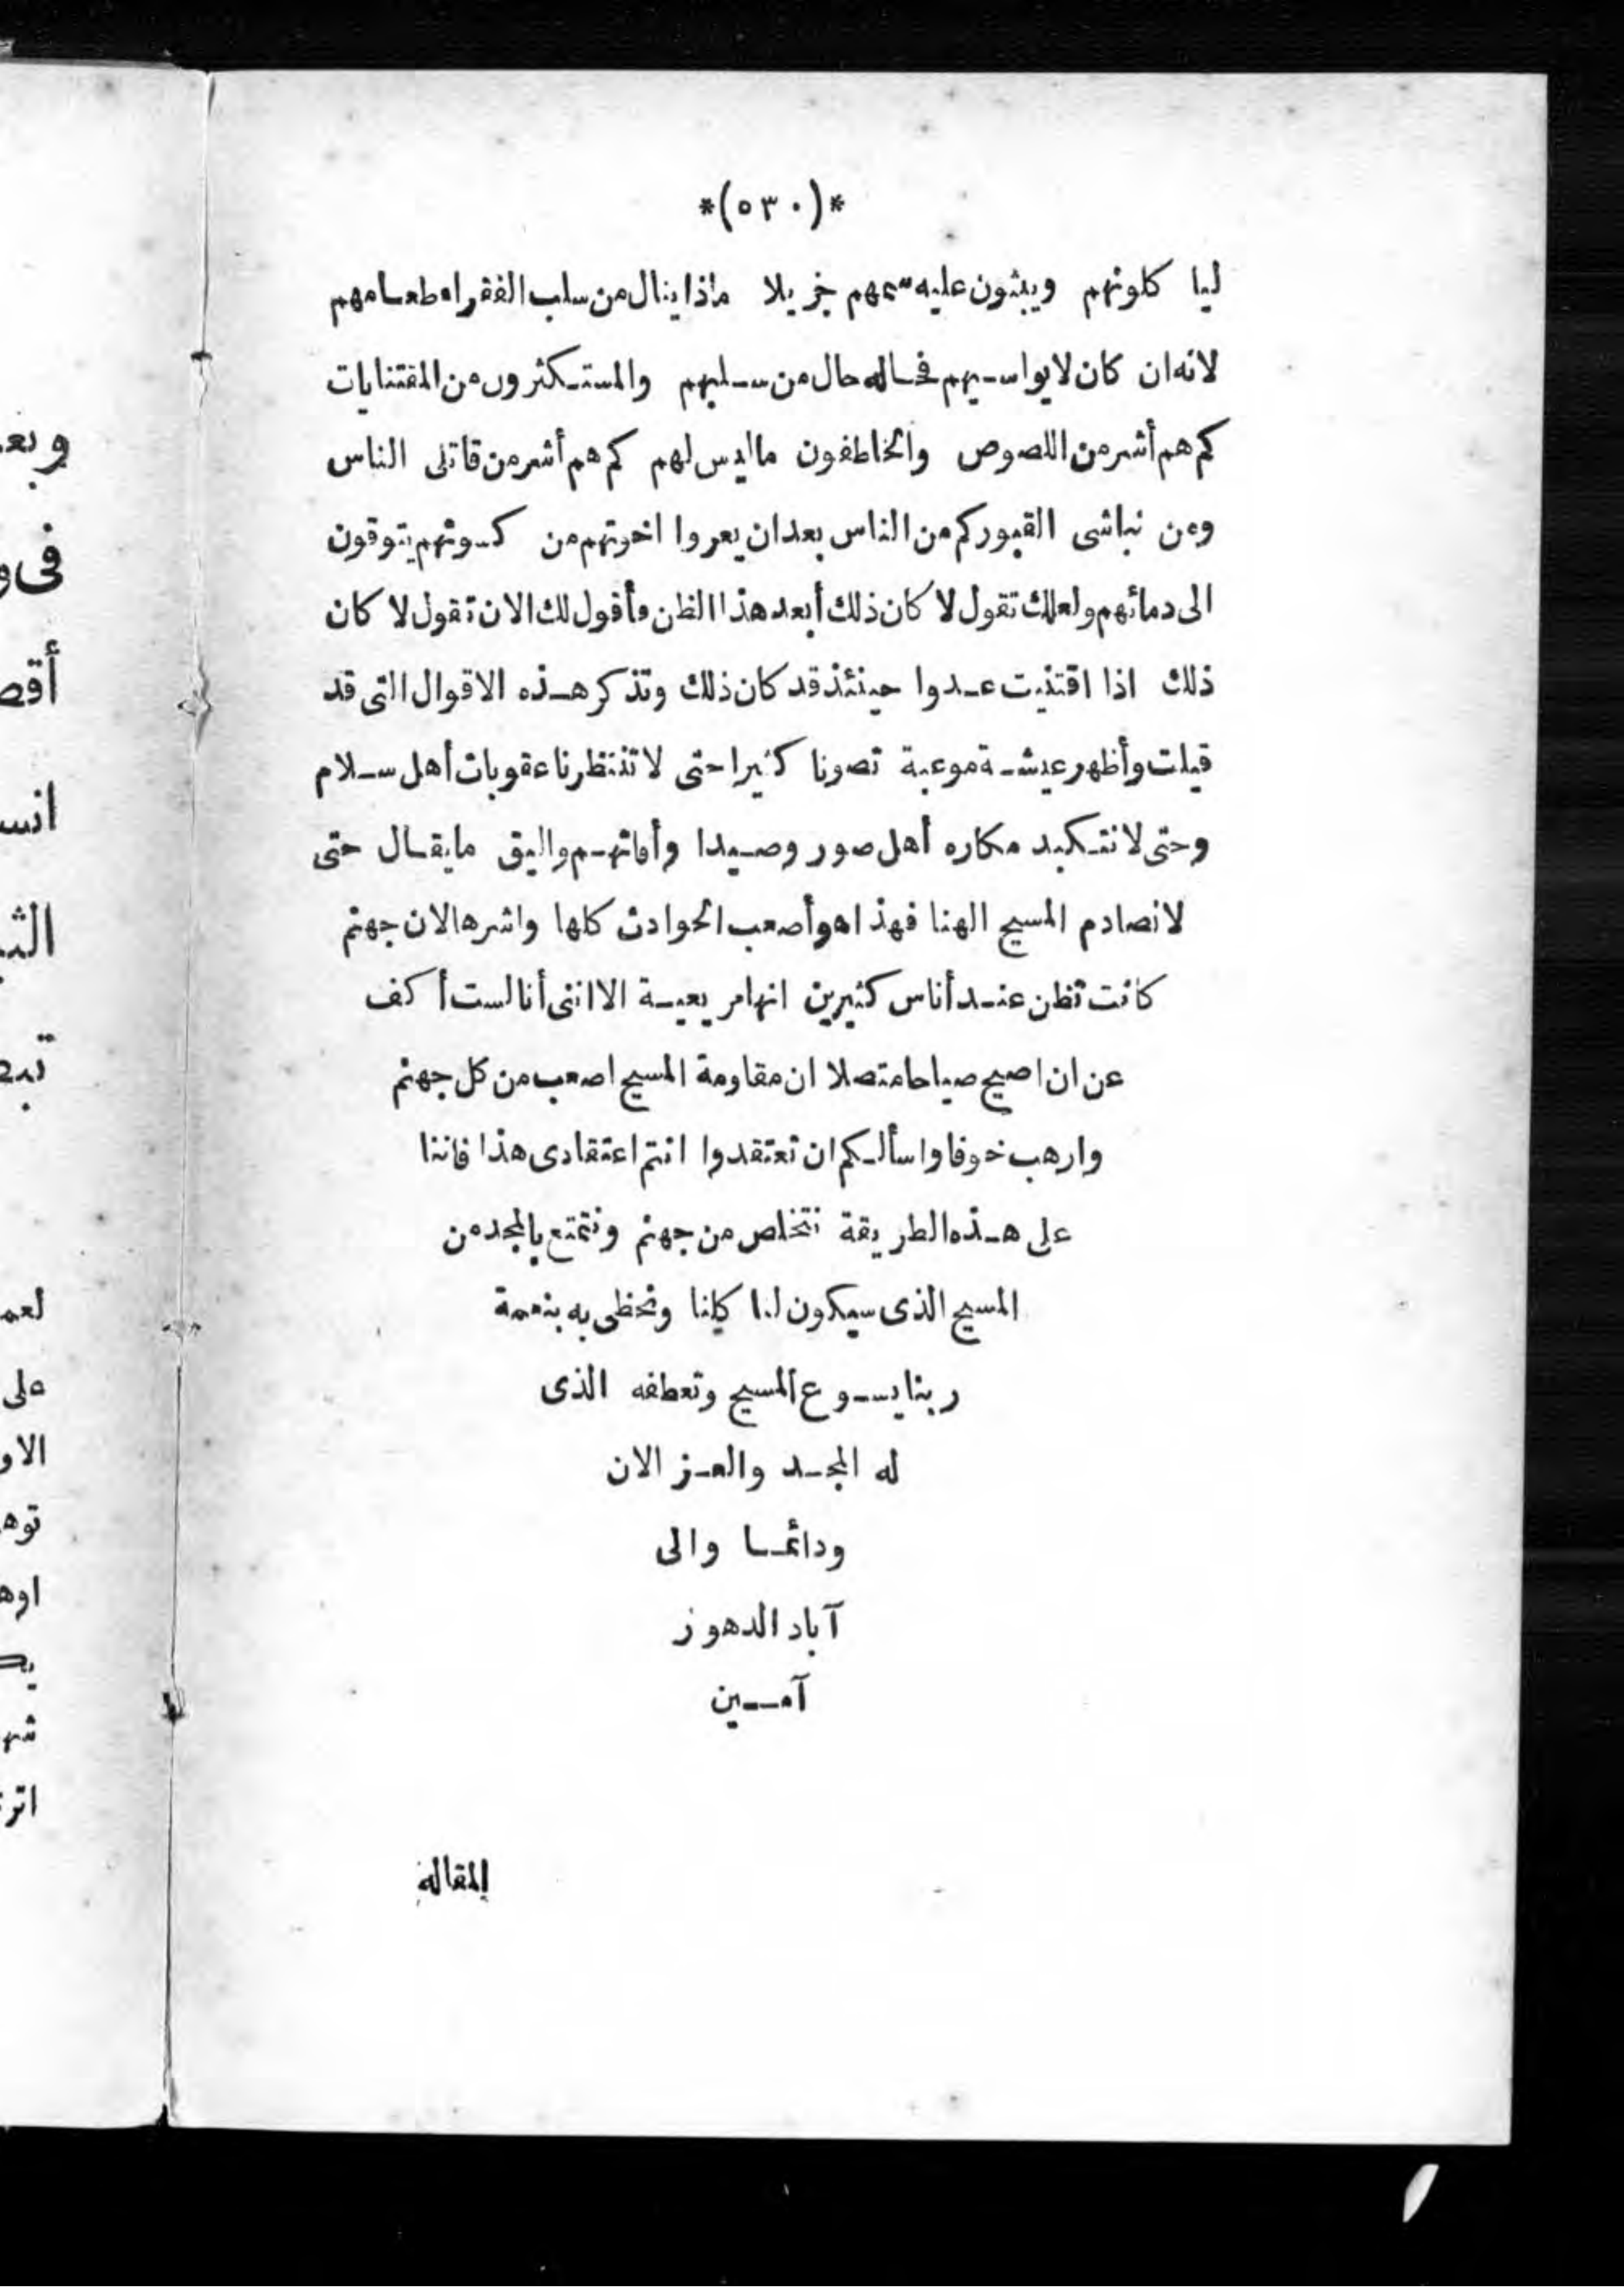 *(٥٣٠)*
ليا كلونهم ويبثون عليه سمهم جزيلا ماذا ينال من سلب الفقراء طعامهم
لانه ان كان لا يواسيهم فحاله حال من سلبهم والمستكثرون من المقتنايات
كم هم أشر من اللصوص والخاطفون ما ليس لهم كم هم أشر من قاتلى الناس
ومن نباشى القبور كم من الناس بعد ان يعروا اخوتهم من كسوتهم يتوقون
الى دمائهم ولعلك تقول لا كان ذلك أبعد هذا الظن وأقول لك الان تقول لا كان
ذلك اذا اقتنيت عدوا حينئذ قد كان ذلك وتذكر هذه الاقوال التى قد
قيلت وأظهر عيشة موعبة تصونا كثيرا حتى لا تنتظرنا عقوبات أهل سلام
وحتى لا نتكبد مكاره أهل صور وصيدا وأفاتهم واليق ما يقال حتى
لا نصادم المسيح الهنا فهذا هو أصعب الحوادث كلها واشرها لان جهنم
كانت تظن عند أناس كثيرين انها مريعية الا اننى أنا لست أكف
عن ان اصيح صياحا متصلا ان مقاومة المسيح اصعب من كل جهنم
وارهب خوفا واسألكم ان تعتقدوا انتم اعتقادى هذا فاننا
على هذه الطريقة نتخلص من جهنم ونتمتع بالمجد من
المسيح الذى سيكون لنا كلنا ونحظى به بنعمة
ربنا يسوع المسيح وتعطفه الذى
له المجد والعز الان
ودائما والى
آباد الدهور
آمين
المقالة